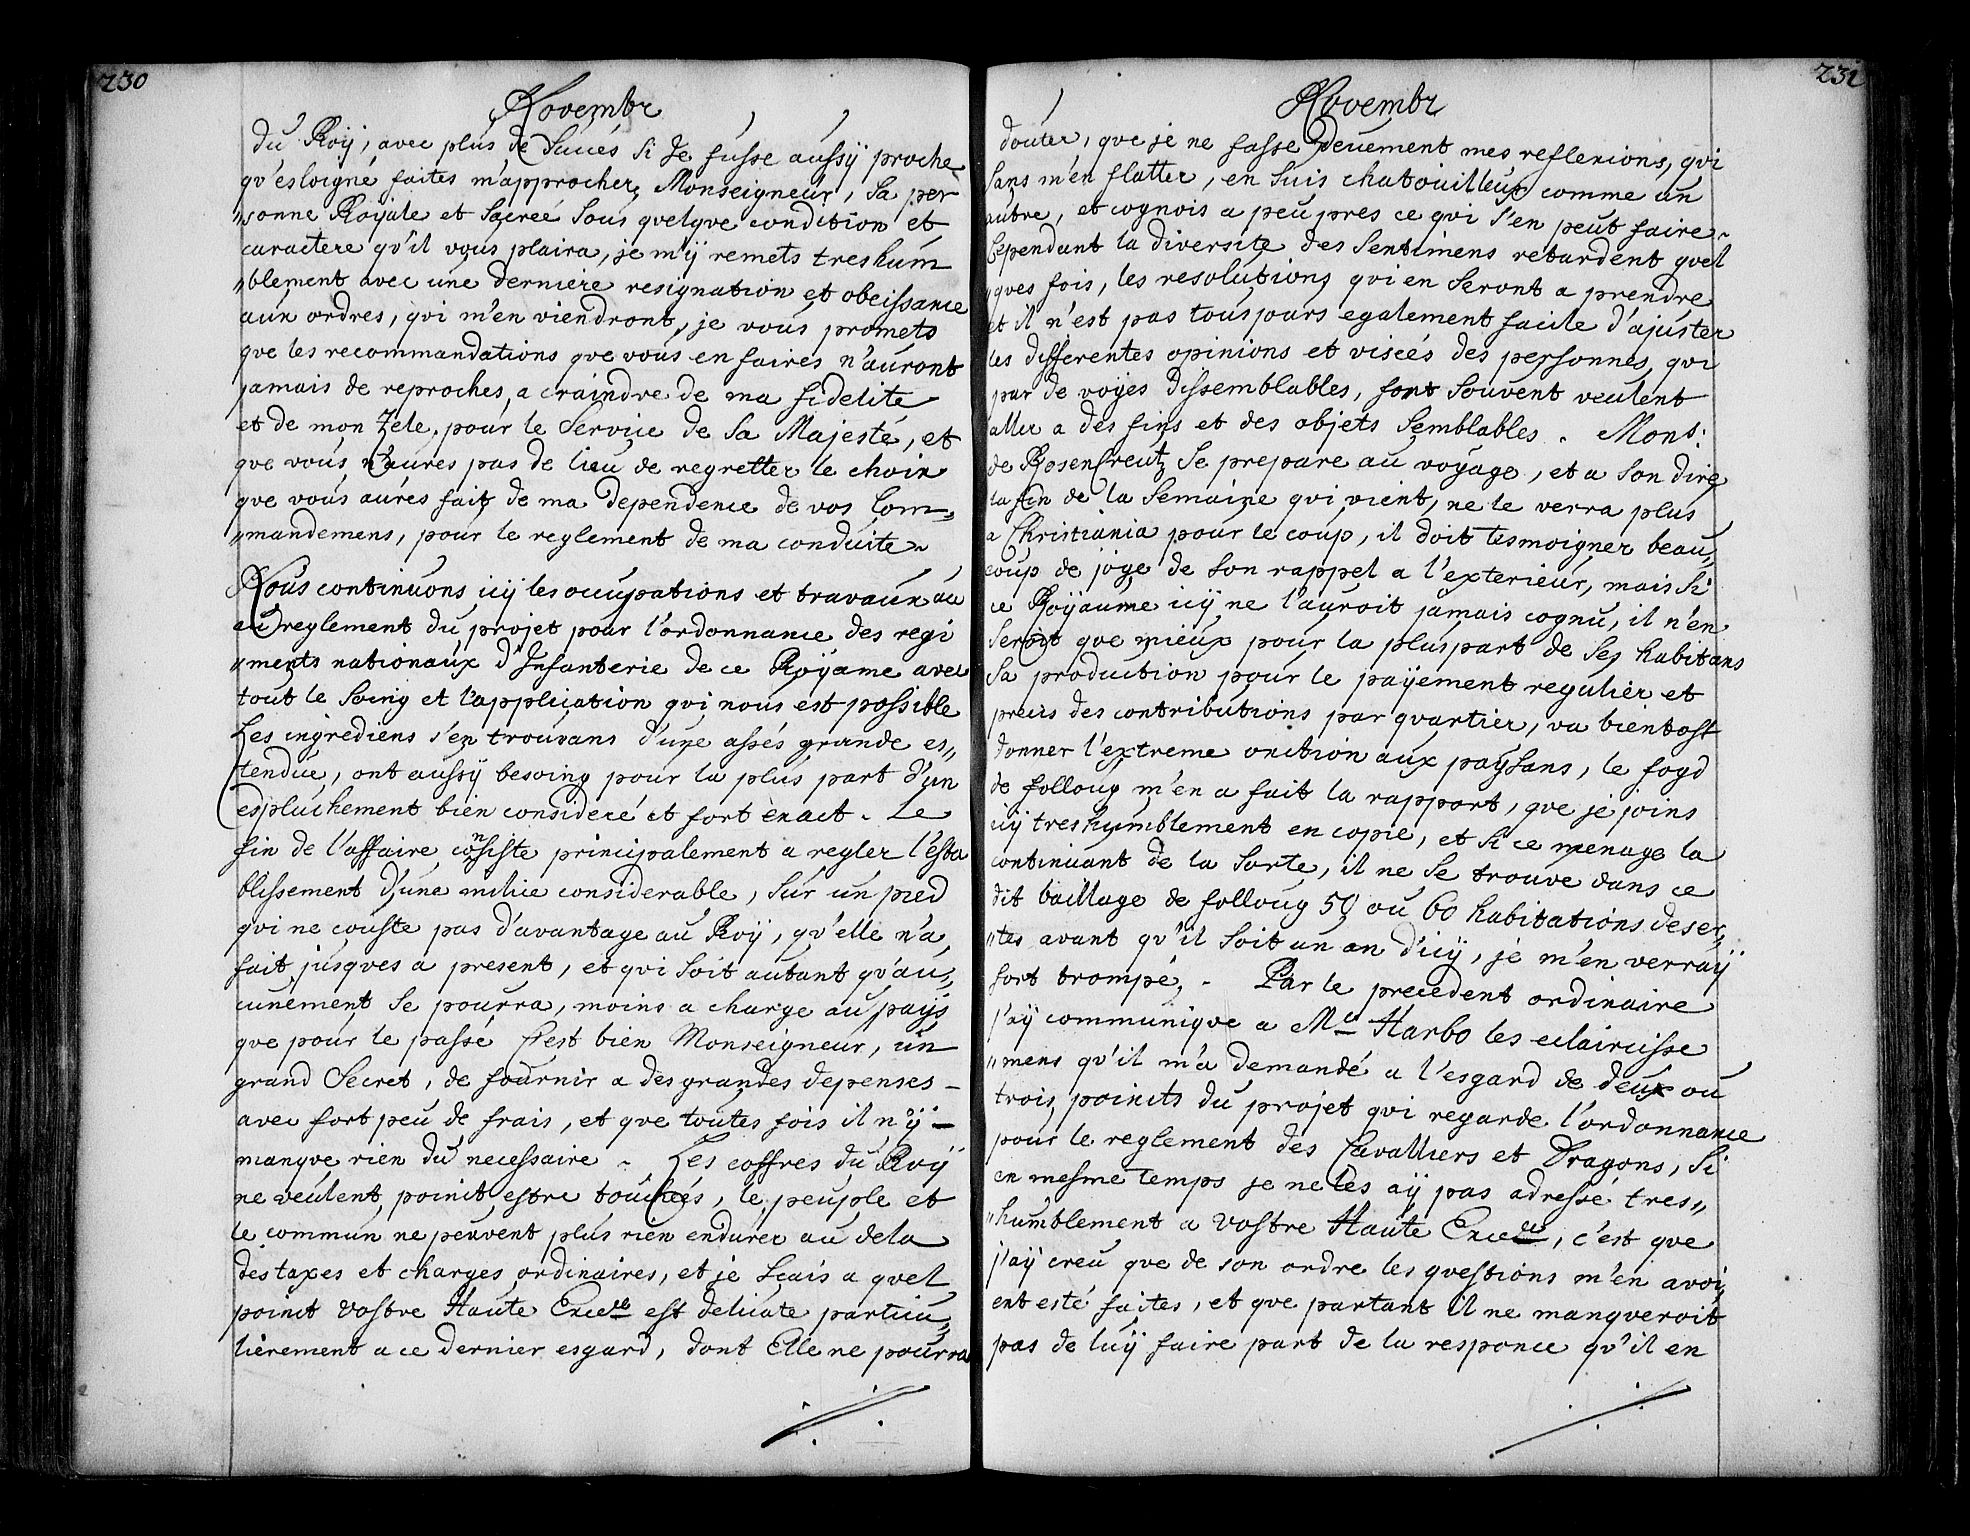 230
Novembr
du Roij, avec plus de Succés si Je fusse aussÿ proche
qv'esloigné faites m'approcher, Monseigneur, Sa per
„sonne Roijale et Sacreé Sous qvelqve condition et
caractere qv'il vous plaira, je m'ÿ remets treshum
„blement avec une derniere resignation et obeissance
aux ordres, qvi m'en viendront, je vous promets
qve les recommandations qve vous en faires n'auront
jamais de reproches, a craindre de ma fidelite
et de mon Zele, pour le Service de Sa Majesté, et
qve vous n'aures pas de lieu de regretter le choix
qve vous aurés fait de ma Dependence de vos Com„
„mandemens, pour le reglement de ma conduite~
Nous continuons icÿ les occupations et travaux au
au reglement du projet pour l'ordonnance des regi
„ments nationaux d'Infanterie de ce Roÿame avec
tout le Soing et l'application qvi nous est possible
Les ingrediens s'en trouvans d'une assés grande es„
tendue, ont aussÿ besoing pour la plus part d'un
espluchement bien consideré et fort exact. Le
fin de l'affaire consiste principalement a regler l'esta
blissement d'une milice considerable, Sur un pied
qvi ne couste pas d'avantage au Roÿ, qv'elle n'a
fait jusqves a present, et qvi Soit autant qv'au„
cunement Se pourra, moins a charge au paÿs
qve pour le passé C'est bien Monseigneur, un
grand Secret, de fournir a des grandes depenses –
avec fort peu de frais, et qve toutes fois il n'ÿ –
manqve rien du necessaire ~ Les coffres du Roÿ
ne veulent poinct estre touchés, le peuple et
le commun ne peuvent plus rien endurer au dela
des taxes et charges ordinaires, et je Scais a qvel
poinct vostre Haute Exce<sup>ce</sup> est delicate particu„
lierement a ce dernier esgard, dont Elle ne pourra
231
Novembr
douter, qve je ne fasse Deuement mes reflexions, qvi
Sans m'en flatter, en Suis chatouilleux comme un
autre, et cognois a peu pres ce qvi s'en peut faire~
Cependant la diversite des Sentimens retardent qvel
„qves fois, les resolutions qvi en Seront a prendre
et il n'est pas tousjours egalement facile d'ajuster
les differentes opinions et viseés des personnes, qvi
par de voÿes dissemblables, font Souvent veulent
aller a des fins et des objets Semblables. Mons:
de RosenCreutz Se prepare au voÿage, et a Son dire
la fin de la Semaine qvi vient, ne le verra plus
a Christiania pour le coup, il doit tesmoigner beau„
coup de joÿe de Son rappel a l'exterieur, mais Si
ce Roÿaume icÿ ne l'auroit jamais cognu, il n'en
Seroit qve mieux pour la pluspart de Ses habitans
Sa production pour le paÿement regulier et
precis des contributions par qvartier, va bientost
donner l'extreme onction aux paÿsans, le fogd
de folloug m'en a fait la rapport, qve je joins
icÿ treshumblement en copie, et Si ce menage la
continuant de la Sorte, il ne Se trouve dans ce
dit baillage de folloug 50 ou 60 habitations deser„
„tes avant qv'il Soit un an d'icÿ, je m'en verraÿ
fort trompé, . Par le precedent ordinaire
j'aÿ communiqve a M<sup>r</sup> Harbo les eclaircisse
„mens qv'il m'a Demandé a l'esgard de deux ou
trois poincts du projet qvi regarde l'ordonnance
pour le reglement des Cavalliers et Dragons, Si
en mesme temps je ne les aÿ pas adressé tres„
„humblement a Vostre Haute Exce<sup>ce</sup>, c'est qve
j'aÿ creu qve de son ordre les qvestions m'en avoi„
ent esté faites, et qve partant il ne manqveroit
pas de luÿ faire part de la responce qv'il en